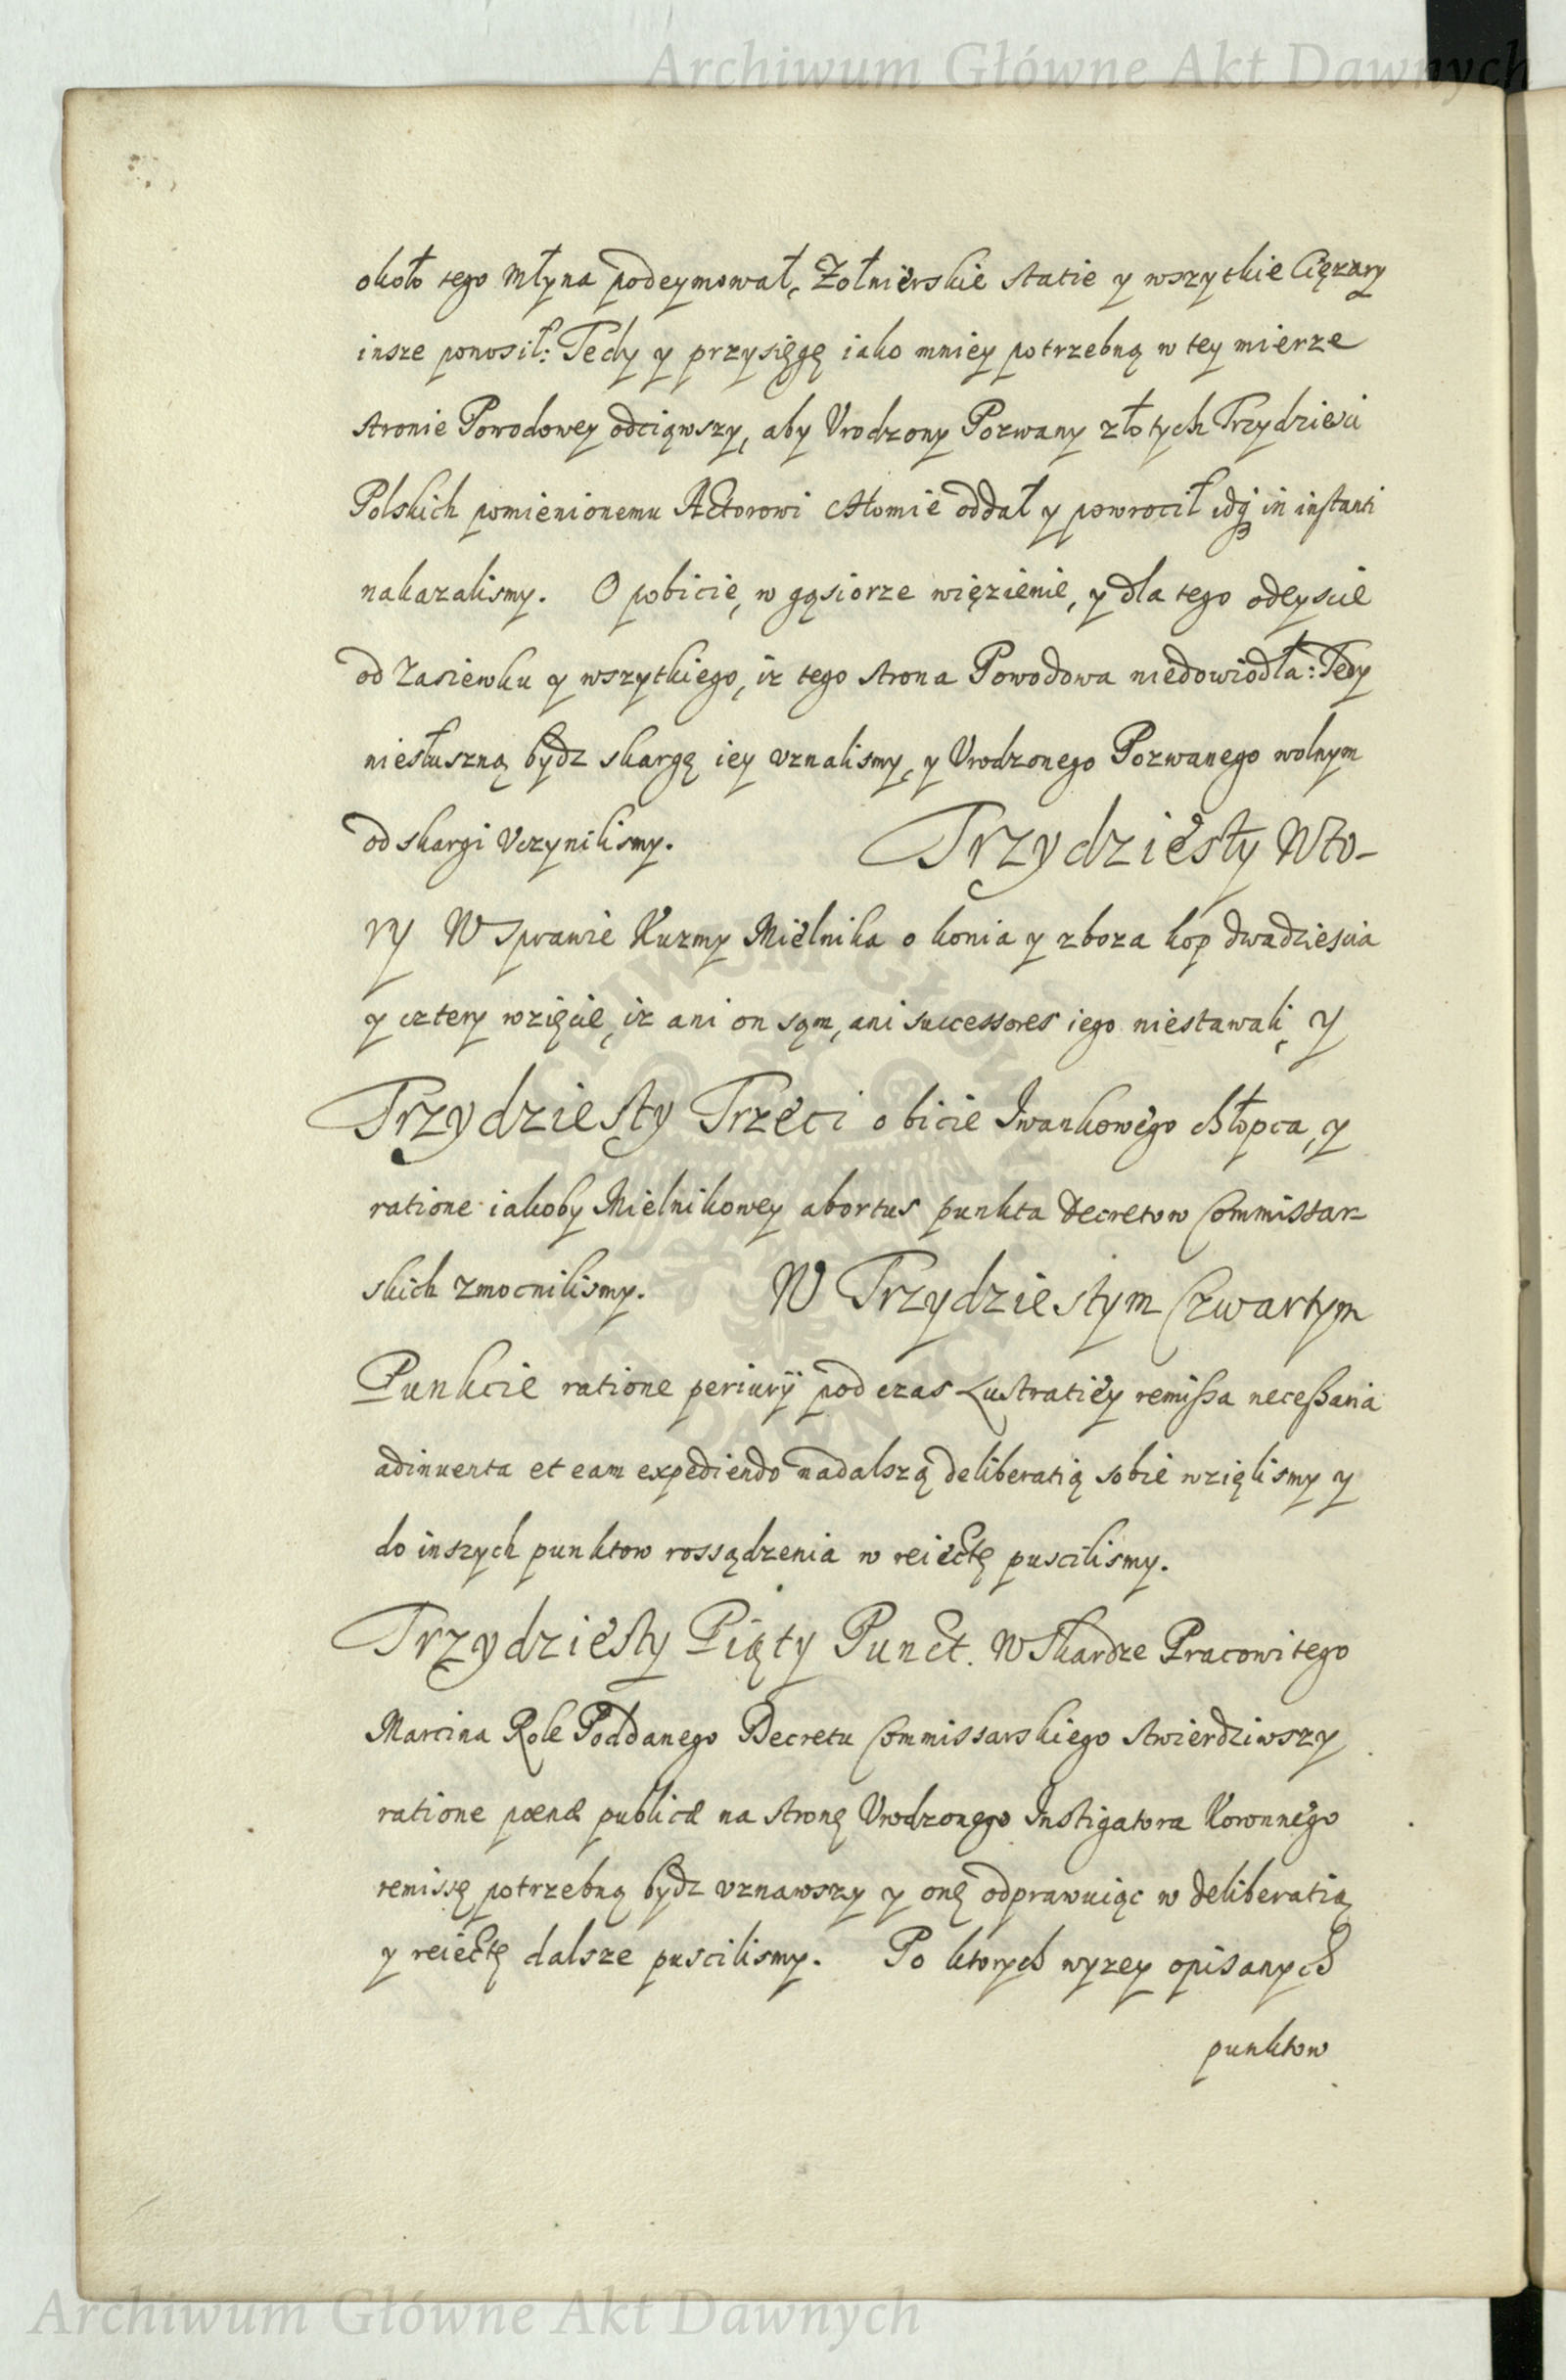 Archiwum Główne Akt Dawnych
około tego Młyna podeymował, Żołnierskie statie y wszytkie Ciężary
insze ponosił: Tedy y przysięgę iako mniey potrzebną w tey mierze
stronie Powodowey odciąwszy, aby Vrodzony Pozwany złotych Trzydziesci
Polskich pomienionemu Actorowi Chomie oddał y powrocił idqȝ in instanti
nakazalismy. O pobicie, w gąsiorze więzienie, y dla tego odeyscie
od Zasiewku y wszytkiego, iz tego strona Powodowa niedowiodła: Tedy
niesłuszną bydz skargę iey vznalismy, y Vrodzonego Pozwanego wolnym
od skargi Vczynilismy. Trzydziesty Wto-
ry W sprawie Kuzmy Mielnika o konia y zboza kop dwadziescia
y cztery wzięcie, iz ani on sąm, ani successores iego niestawali, y
Trzydziesty Trzeci o bicie Iwankowego chłopca, y
ratione iakoby Mielnikowey abortus punkta Decretow Commissar-
skich zmocnilismy. W Trzydziestym Czwartym
Punkcie ratione periurÿ pod czas Lustratiey remissa necessaria
adinuenta et eam expediendo nadalszą deliberatią sobie wzięlismy y
do inszych punktow rossądzenia w reiectę puscilismy.
Trzydziesty Piąty Punct. W Skardze Pracowitego
Marcina Role Poddanego Decretu Commissarskiego stwierdziwszy
ratione pœnæ publicæ na stronę Vrodzonego Instigatora Koronnego
remissę potrzebną bydz vznawszy y onę odprawuiąc w deliberatią
y reiectę dalsze puscilismy. Po ktorych wyzey opisanych
punktow
Archiwum Główne Akt Dawnych